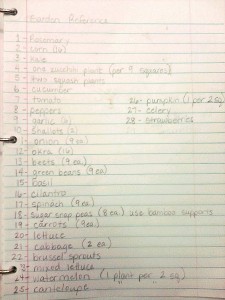 Garden Reference
1- Rosemary
2- corn (16)
3- kale
4- one zucchini plant (per 9 squares)
5- two squash plants
6- cucumber
7- tomato
8- peppers
9- garlic (6)
10- Shallots
11- onion (9 ea)
12- okra (16)
13- beets (9 ea)
14- green beans (9 ea)
15- Basil
16- cilantro
17- spinach (9 ea)
18- sugar snap peas (8 ea) use bamboo supports
19- carrots (9 ea)
20- lettuce
21- cabbage (2 ea)
22- brussel sprouts
23- mixed lettuce
24- watermelon (1 plant per 2 sq)
25- canteloupe
26- pumpkin (1 per 2 sq)
27- celery
28- strawberries